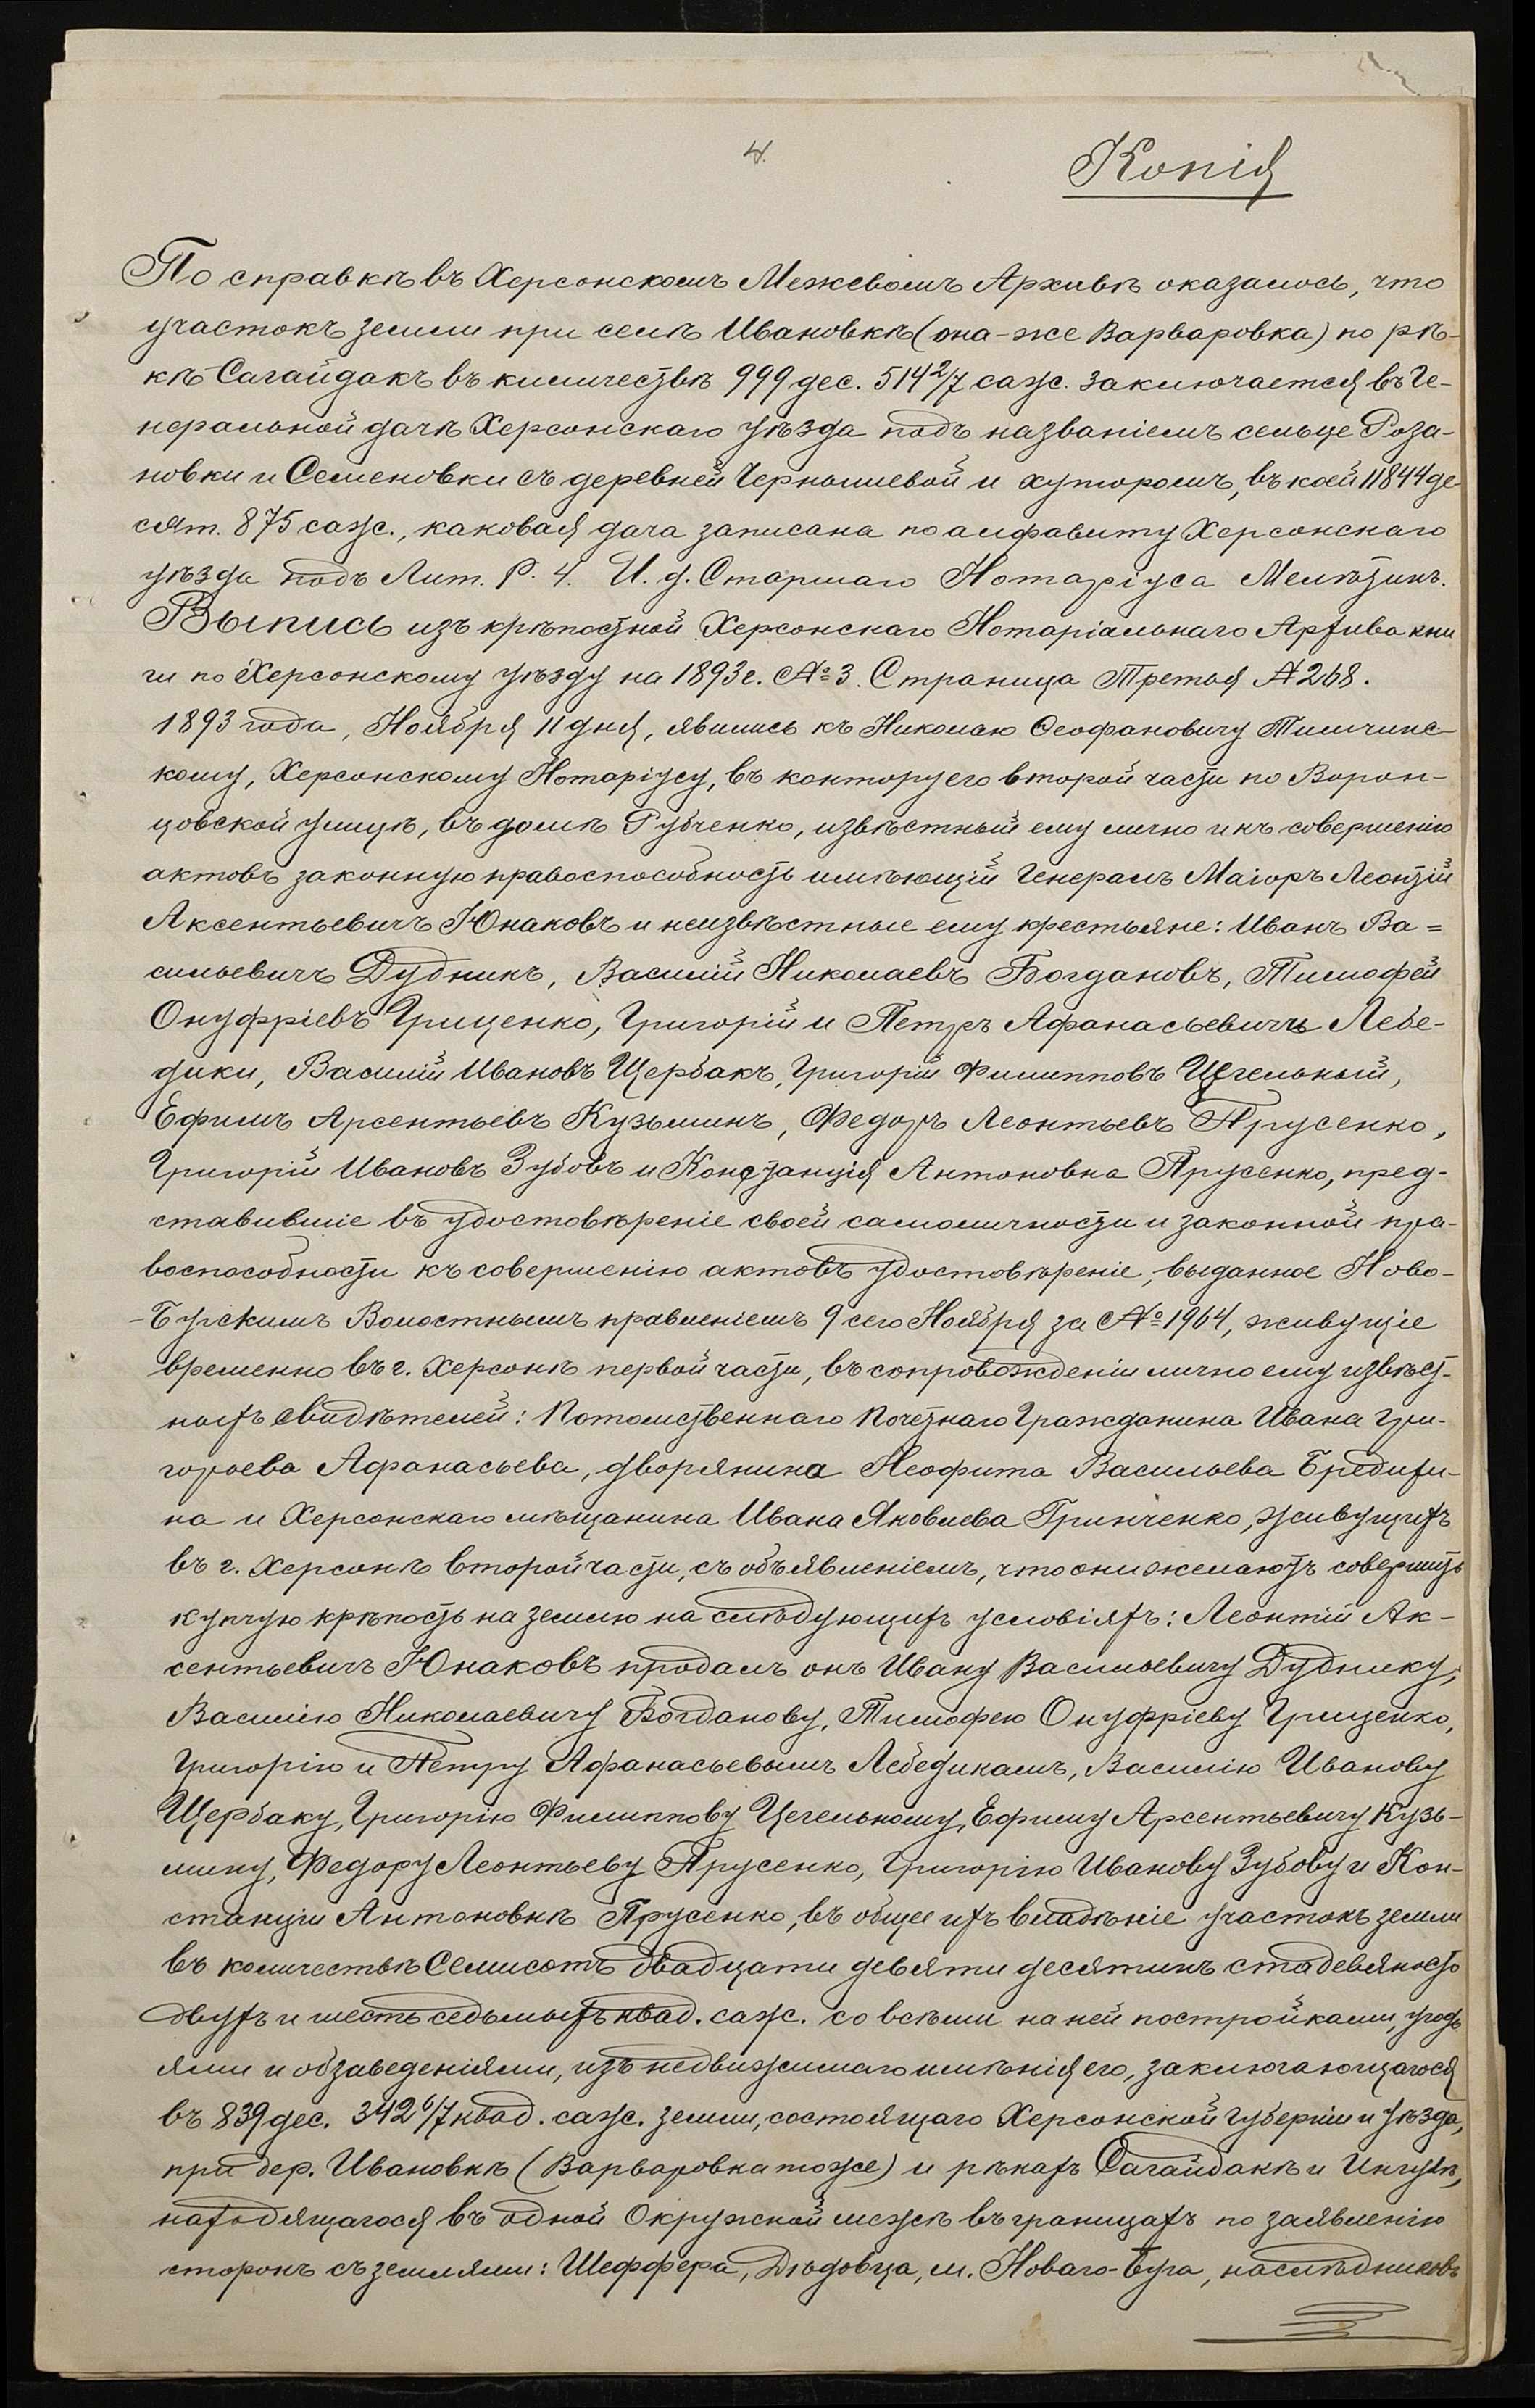 4.
Копія
По справкѣ въ Херсонскомъ Межевомъ Архивѣ оказалось, что
участокъ земли при селѣ Ивановкѣ (она-же Варваровка) по рѣ-
кѣ Сагайдакъ въ киличествѣ 999 дес. 514 2/7 саж. заключается въ Ге-
неральной дачѣ Херсонскаго уѣзда подъ названіемъ сельце Роза-
новки и Семеновки съ деревней Чернышевой и хуторомъ, въ коей 11844 де
сят. 875 саж., каковая дача записана по алфавиту Херсонскаго
уѣзда подъ Лит. Р. 4. И. д. Старшаго Нотаріуса
Выпись изъ крѣпостной Херсонскаго Нотаріальнаго Архива кни
ги по Херсонскому уѣзду на 1893 г. № 3. Страница Третья № 268.
1893 года, Ноября 11 дня, явились къ Николаю Ѳеофановичу Тимчинс-
кому, Херсонскому Нотаріусу, въ контору его второй части по Ворон-
цовской улицѣ, въ домѣ Рубченко, извѣстный ему лично и къ совершенію
актовъ законную правоспособность имѣющій Генералъ Маіоръ Леонтій
Аксентьевичъ Юнаковъ и неизвѣстные ему крестьяне: Иванъ Ва=
сильевичъ Дудникъ, Василій Николаевъ Богдановъ, Тимофей
Онуфріевъ Гриценко, Григорій и Петръ Афанасьевичи Лебе-
дики, Василій Ивановъ Щербакъ, Григорій Филипповъ Цегельный,
Ефимъ Арсентьевъ Кузьминъ, Федоръ Леонтьевъ Прусенко,
Григорій Ивановъ Зубовъ и Констанція Антоновна Прусенко, пред-
ставившіе въ удостовѣреніе своей самоличности и законной пра-
воспособности къ совершенію актовъ удостовѣреніе, выданное Ново-
-Бугскимъ Волостнымъ правленіемъ 9 сего Ноября за № 1964, живущіе
временно въ г. Херсонѣ первой части, въ сопровожденіи лично ему извѣст-
ныхъ свидѣтелей: Потомственнаго Почетнаго Гражданина Ивана Гри-
горьева Афанасьева, дворянина Неофита Васильева Бредихи-
на и Херсонскаго мѣщанина Ивана Яковлева Гринченко, живущихъ
въ г. Херсонѣ второй части, съ объявленіемъ, что они желаютъ совершить
купчую крѣпость на землю на слѣдующихъ условіяхъ: Леонтій Ак-
сентьевичъ Юнаковъ продалъ онъ Ивану Васильевичу Дуднику,
Василію Николаевичу Богданову, Тимофею Онуфріеву Гриценко,
Григорію и Петру Афанасьевымъ Лебедикамъ, Василію Иванову
Щербаку, Григорію Филиппову Цегельному, Ефиму Арсентьевичу Кузь-
мину, Федору Леонтьеву Прусенко, Григорію Иванову Зубову и Кон-
станціи Антоновнѣ Прусенко, въ общее ихъ владѣніе участокъ земли
въ количествѣ Семисотъ двадцати девяти десятинъ ста девяносто
двухъ и шесть седьмыхъ квад. саж. со всѣми на ней постройками, угодь
ями и обзаведеніями, изъ недвижимаго имѣнія его, заключающагося
въ 839 дес. 342 6/7 квад. саж. земли, состоящаго Херсонской губерніи и уѣзда,
при дер. Ивановкѣ (Варваровка тоже) и рѣкахъ Сагайдакѣ и Ингулѣ,
находящагося въ одной Окружной межѣ въ границахъ по заявленію
сторонъ съ землями: Шеффера, Дѣдовца, м. Новаго-Буга, наслѣдниковъ